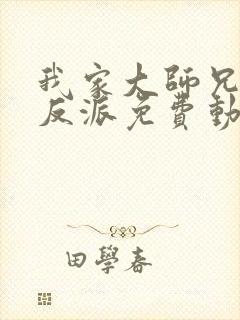 我家大師兄
反派免費動
田學春